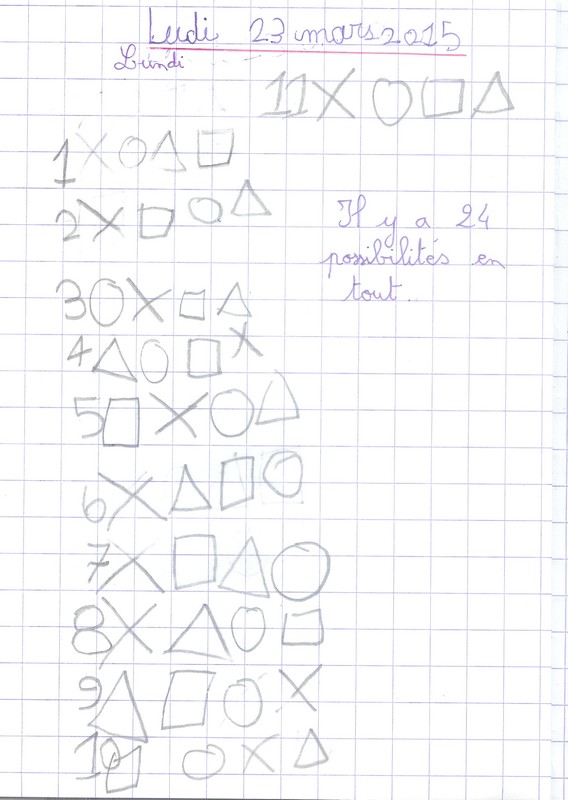 Ludi 23 mars 2015
Lundi
11 X ○ □ △
1 X ○ △ □
2 X □ ○ △
Il y a 24
possibilités en
tout.
3 ○ X □ △
4 △ ○ □ X
5 □ X ○ △
6 X △ □ ○
7 X □ △ ○
8 X △ ○ □
9 △ □ ○ X
10 □ ○ X △